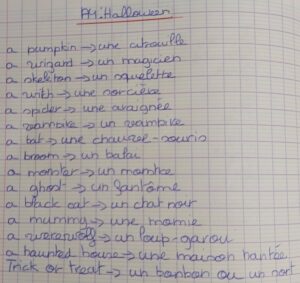 PM: Halloween
a pumpkin → une citrouille
a wizard → un magicien
a skeleton → un squelette
a witch → une sorcière
a spider → une araignée
a vampire → un vampire
a bat → une chauve-souris
a broom → un balai
a monster → un monstre
a ghost → un fantôme
a black cat → un chat noir
a mummy → une momie
a werewolf → un loup-garou
a haunted house → une maison hantée
Trick or treat → un bonbon ou un sort